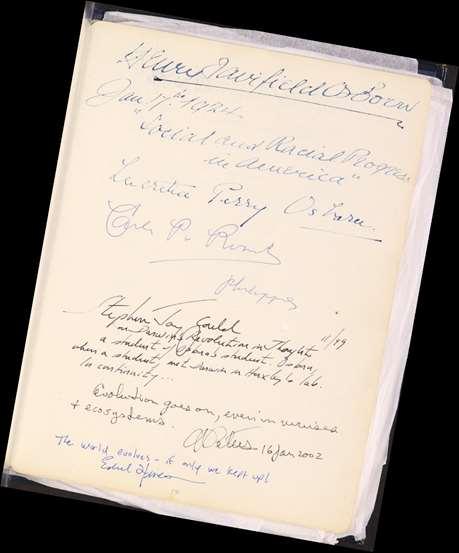 Henry Fairfield Osborn
Jan. 17th 1924.
"Social and Racial Progress
in America"
Lucretia Perry Osborn.
Carlos P. Romulo
Philippines
Stephen Jay Gould 11/99
on Darwin's Revolution in Thought
a student of student, Osborn,
when a student, met Darwin in Huxley's lab.
In continuity...
Evolution goes on, even in viruses
& ecosystems. 16 Jan 2002
The world evolves - if only we kept up!